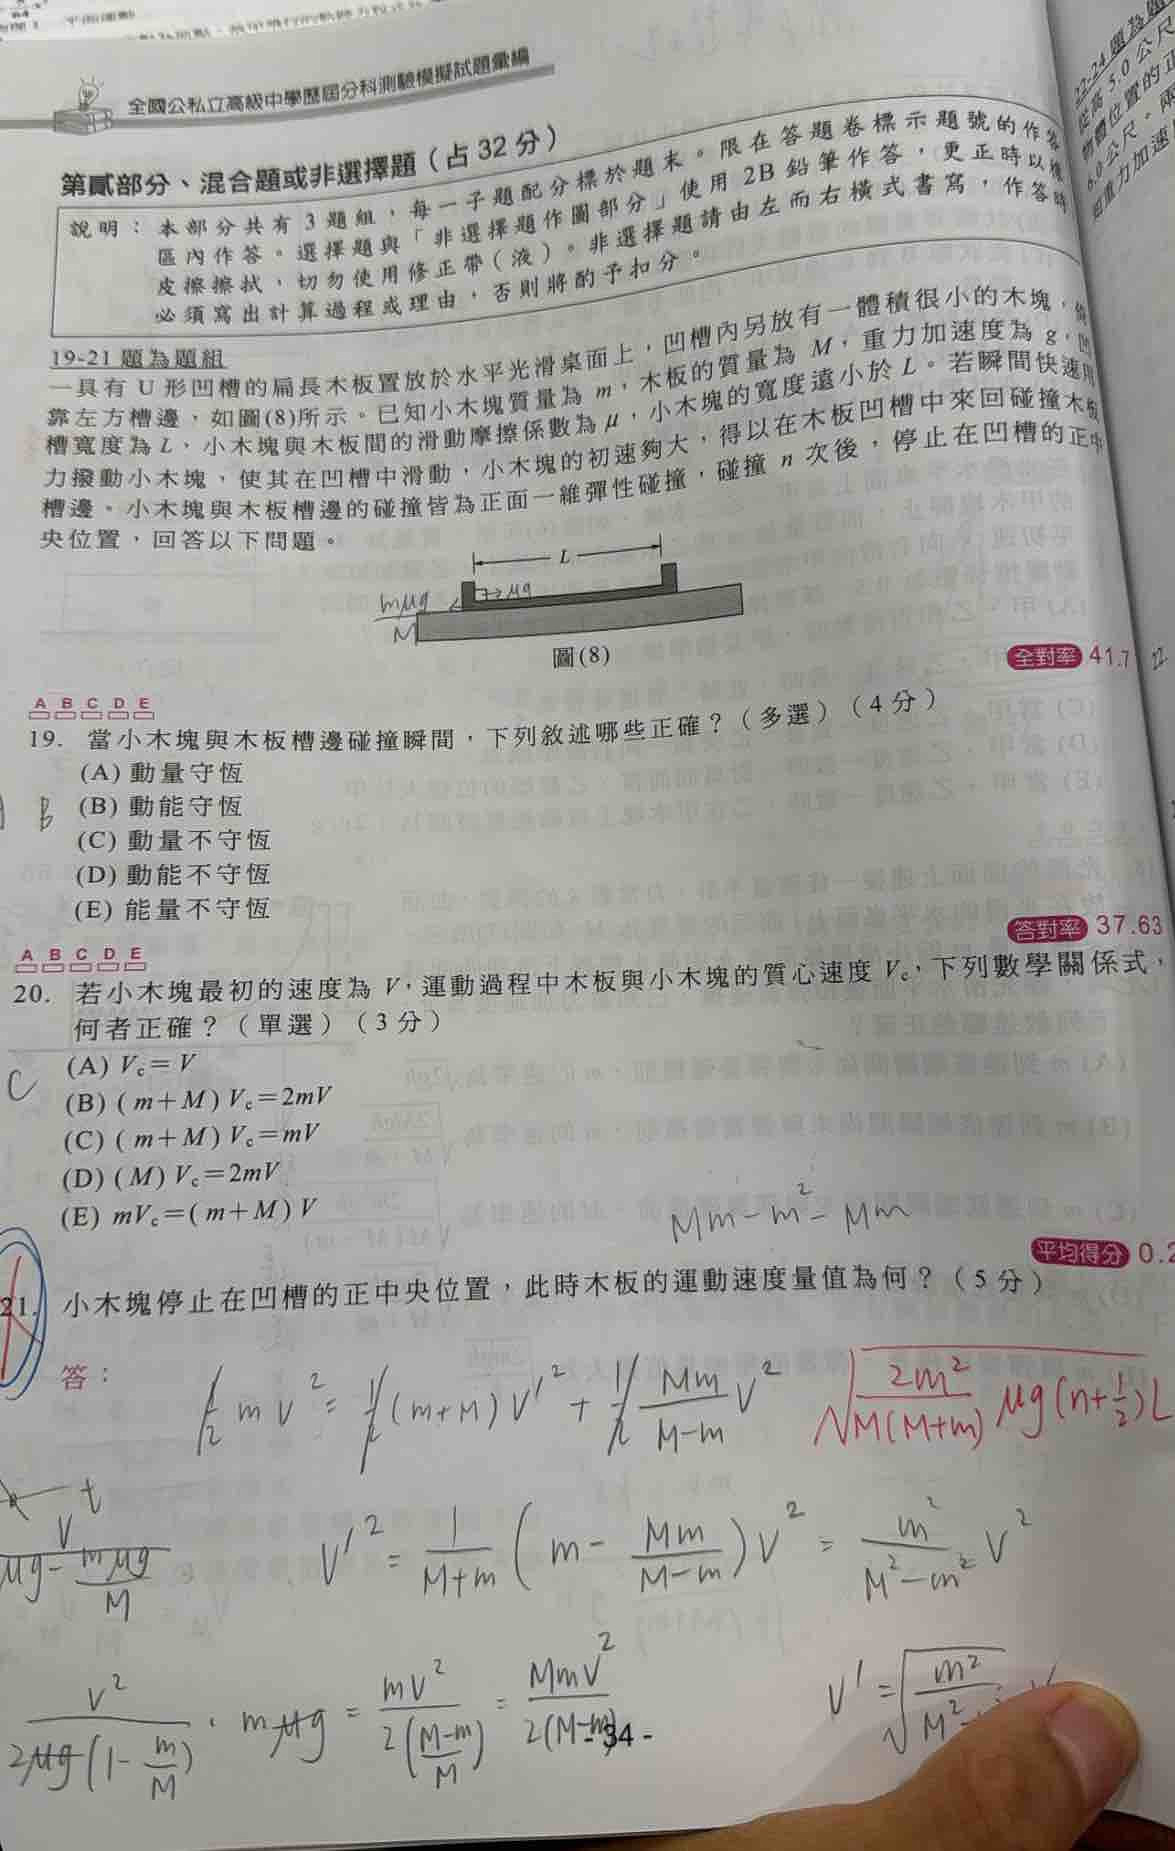 全國公私立高級中學歷屆分科測驗模擬試題彙編
第貳部分、混合題或非選擇題（占 32 分）
說明：本部分共有 3 題組，每一子題配分標於題末。限在答題卷標示題號的作答
區內作答。選擇題與「非選擇題作圖部分」使用 2B 鉛筆作答，更正時以橡
皮擦擦拭，切勿使用修正帶（液）。非選擇題請由左而右橫式書寫，作答時
必須寫出計算過程或理由，否則將酌予扣分。
19-21 題為題組
一具有 U 形凹槽的扁長木板置放於水平光滑桌面上，凹槽內另放有一體積很小的木塊，
靠左方槽邊，如圖(8)所示。已知小木塊質量為 m，木板的質量為 M，重力加速度為 g，凹
槽寬度為 L，小木塊與木板間的滑動摩擦係數為 μ，小木塊的寬度遠小於 L。若瞬間快速用
力撥動小木塊，使其在凹槽中滑動，小木塊的初速夠大，得以在木板凹槽中來回碰撞木板
槽邊。小木塊與木板槽邊的碰撞皆為正面一維彈性碰撞，碰撞 n 次後，停止在凹槽的正中
央位置，回答以下問題。
L
mμg
M
μg
圖(8)
全對率 41.7
A B C D E
19. 當小木塊與木板槽邊碰撞瞬間，下列敘述哪些正確？（多選）（4 分）
(A) 動量守恆
(B) 動能守恆
B
(C) 動量不守恆
(D) 動能不守恆
(E) 能量不守恆
答對率 37.63
A B C D E
20. 若小木塊最初的速度為 V，運動過程中木板與小木塊的質心速度 Vc，下列數學關係式，
何者正確？（單選）（3 分）
(A) Vc = V
C
(B) ( m + M ) Vc = 2mV
(C) ( m + M ) Vc = mV
(D) ( M ) Vc = 2mV
(E) mVc = ( m + M ) V
Mm - m² - Mm
平均得分 0.2
21. 小木塊停止在凹槽的正中央位置，此時木板的運動速度量值為何？（5 分）
答：
1/2 m V² = 1/2 (m+M) V'² + 1/2 Mm/(M-m) V²
√(2m²/(M(M+m)) μg(n+1/2)L
t
V/(μg - mμg/M)
V'² = 1/(M+m) (m - Mm/(M-m)) V² = m²/(M²-m²) V²
V²/(2μg(1 - m/M)) · mμg = mV²/(2((M-m)/M)) = MmV²/(2(M-m))
- 34 -